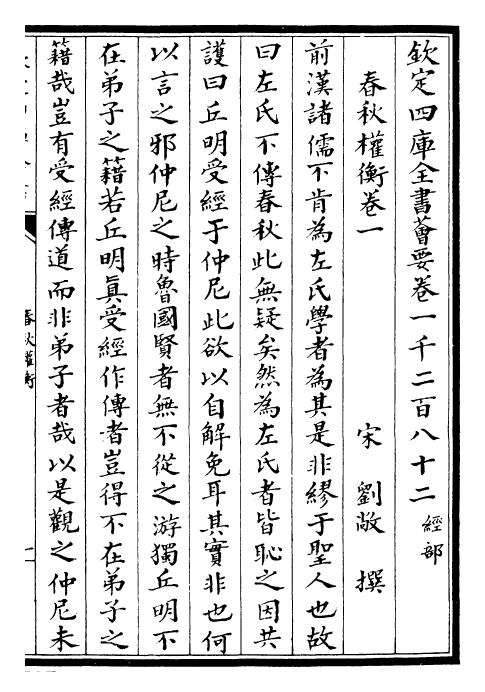 欽定四庫全書薈要卷一千二百八十二 經部
春秋權衡卷一
宋 劉敞 撰
前漢諸儒不肯為左氏學者為其是非繆于聖人也故
曰左氏不傳春秋此無疑矣然為左氏者皆恥之因共
護曰丘明受經于仲尼此欲以自解免耳其實非也何
以言之邪仲尼之時魯國賢者無不從之游獨丘明不
在弟子之籍若丘明真受經作傳者豈得不在弟子之
籍哉豈有受經傳道而非弟子者哉以是觀之仲尼未
春秋權衡